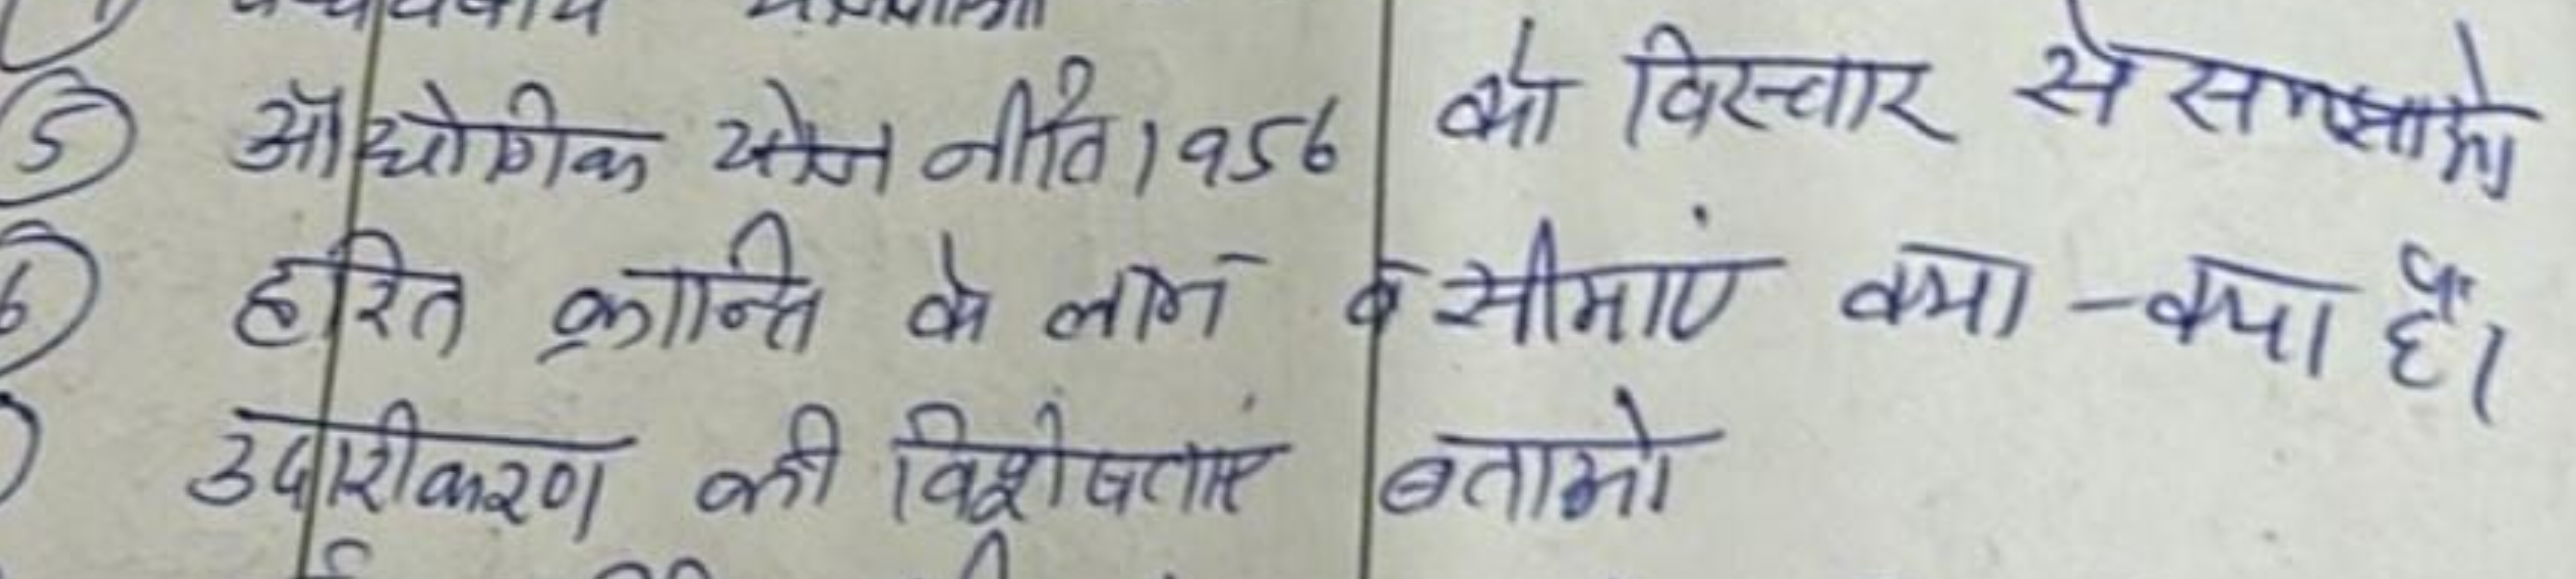 ⑤ औद्योगिक नीति 1956 को विस्तार से समझाओ
⑥ हरित क्रान्ति के लाभ व सीमाएं क्या-क्या हैं।
उदारीकरण की विशेषताएं बताओ